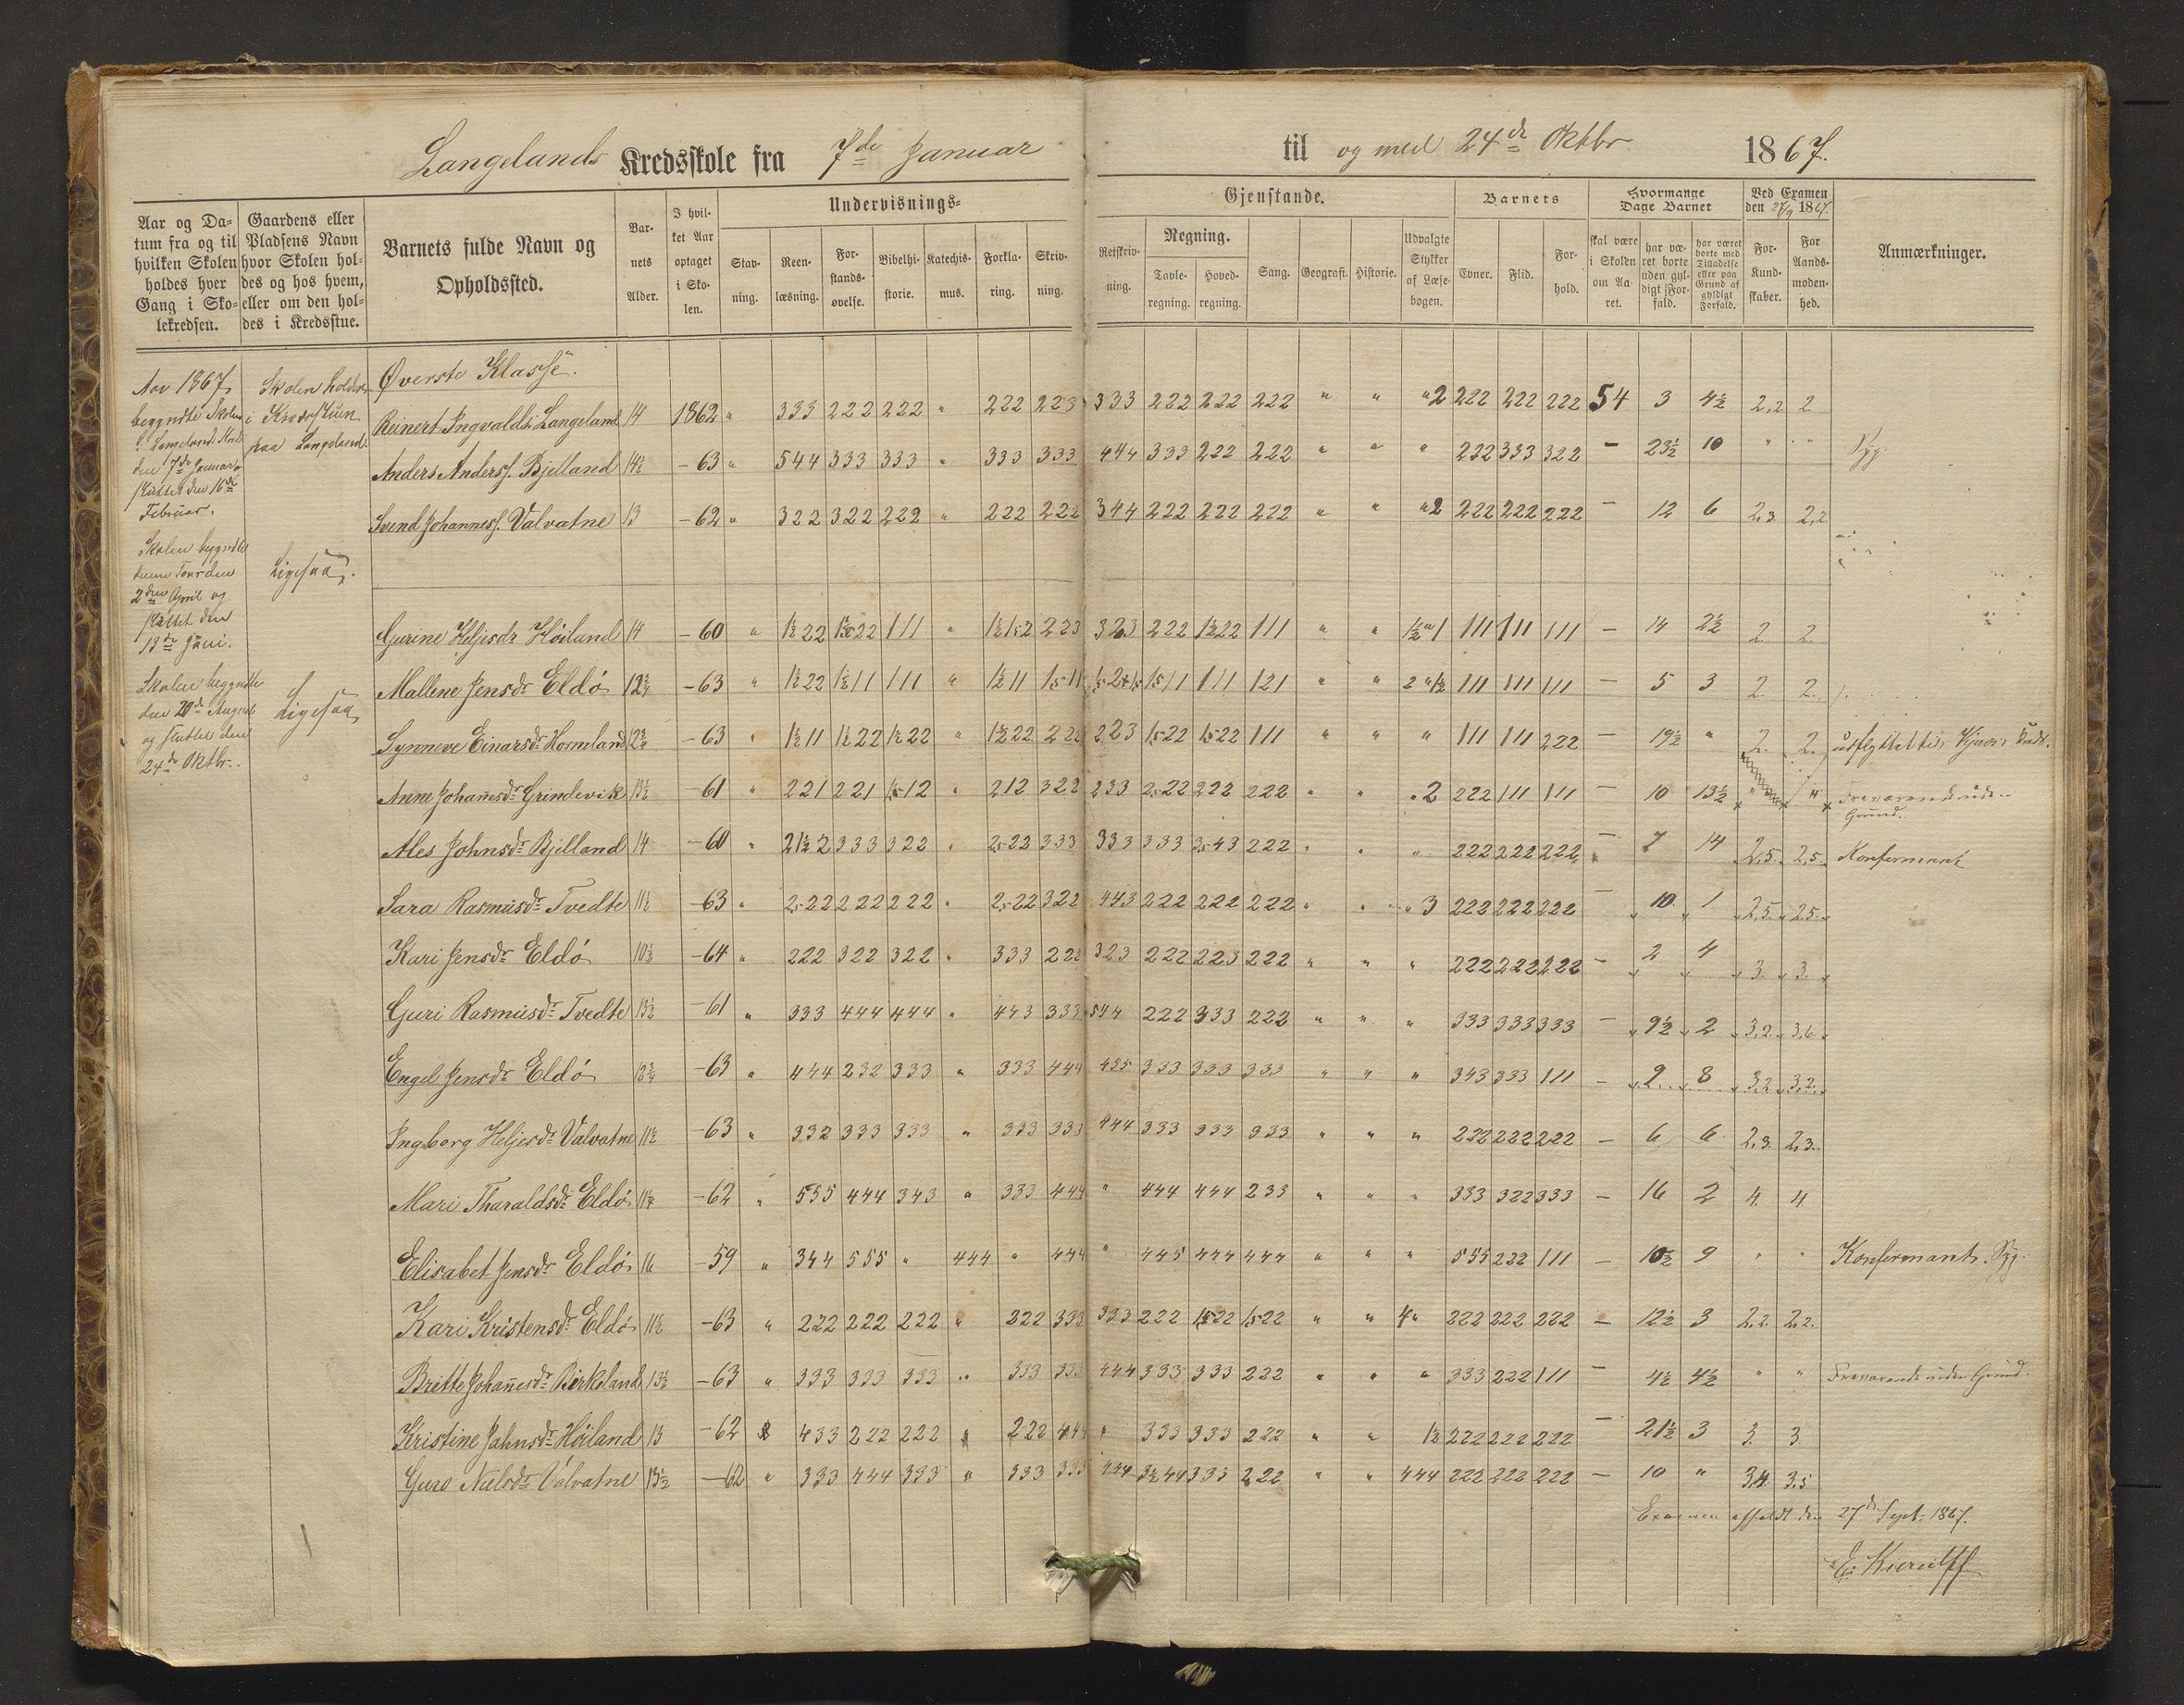 Langelands Kredsskole fra 7de Januar til og med 24de Oktbr 1867.
Aar og Datum fra og til hvilken Skolen holdes hver Gang i Skolekredsen.
Gaardens eller Pladsens Navn hvor Skolen holdes og hos hvem, eller om den holdes i Kredsstue.
Barnets fulde Navn og Opholdssted.
Barnets Alder.
I hvilket Aar optaget i Skolen.
Undervisnings-
Stavning. Reenlæsning. Forstandsøvelse. Bibelhistorie. Katechismus. Forklaring. Skrivning.
Gjenstande.
Retskrivning. Regning. Tavleregning. Hovedregning. Sang. Geografi. Historie. Udvalgte Stykker af Læsebogen.
Barnets
Evner. Flid. Forhold.
Hvormange Dage Barnet
skal være i Skolen om Aaret. har været borte uden gyldigt Forfald. har været borte med Tilladelse eller paa Grund af gyldigt Forfald.
Ved Examen den 27/9 1867.
For Kundskaber. For Aandsmodenhed.
Anmærkninger.
Aar 1867
begyndte Skolen
den 7de Januar
sluttet den 16de
Februar.
Skolen holdes
i Kredsstuen
paa Langeland.
Skolen begyndte
denne Tour den
2den April og
sluttet den
13de Juni.
Ligesaa.
Skolen begyndte
den 20de August
og sluttet den
24de Oktbr.
Ligesaa
Øverste Klasse.
Reinert Ingvalds. Langeland 14 1862 " 333 222 222 " 222 223 333 222 222 222 " " " 2 222 222 222 54 3 4½ 2,2 2
Anders Anderss. Bjelland 14½ -63 " 544 333 333 " 333 333 444 333 222 222 " " " 222 333 322 - 23½ 10 " " Syg.
Svend Johanness. Valvatne 13 -62 " 322 322 222 " 222 222 344 222 222 222 " " "2 222 222 222 - 12 6 2,3 2,2
Gurine Heljesdr Höiland 14 -60 " 1½22 111 " 223 323 222 1½22 111 " " 1½"1 111 111 111 - 14 2½ 2. 2.
Mallene Jensdr Eldö 12¾ -63 " 1½22 1½11 111 " 1½11 1,511 1,511 111 121 " " 2"1½ 111 111 111 - 5 3 2. 2.
Synneve Einarsdr Hommeland 12¾ -63 " 1½11 1½22 1½22 " 1½22 222 223 1,522 1,522 111 " " " 111 111 222 - 19½ " 2. 2. udflyttet til
Anne Johannesdr Grindevik 13½ -61 " 221 221 1,512 " 212 322 233 2,522 222 222 " " "2 222 111 111 - 10 13½ " " Fraværende uden Grund.
Ales Johnsdr Bjelland 14 -60 " 21½2 333 322 " 2,522 333 333 333 2,543 222 " " " 222 222 222 - 7 14 2,5 2,5 Konfermant
Sara Rasmusdr Tvedte 11½ -63 " 2,522 222 222 " 2,522 322 443 222 222 222 " " "3 222 222 222 - 10 1 2,5 2,5
Kari Jensdr Eldö 10½ -64 " 222 322 322 " 333 222 323 222 223 222 " " " 222 222 222 - 2 4 3. 3.
Guri Rasmusdr Tvedte 13½ -61 " 333 444 444 " 443 333 544 222 333 222 " " " 333 333 333 - 9½ 2 3,2 3,6
Engel Jensdr Eldö -63 " 444 232 333 " 333 444 455 333 333 333 " " " 343 333 111 - 2 8 3,2 3,2
Ingborg Heljesdr Valvatne 11½ -63 " 332 333 333 " 333 333 444 333 333 333 " " " 222 222 222 - 6 6 2,3. 2,3.
Mari Tharaldsdr Eldö -62 " 555 444 343 " 333 444 " 444 444 233 " " " 333 322 333 - 16 2 4. 4.
Elisabet Jensdr Eldö 16 -59 " 344 555 " 444 " 444 " 445 444 444 " " " 555 222 111 - 10½ 9 " " Konfermant. Syg.
Kari Kristensdr Eldö 11½ -63 " 222 222 222 " 222 333 333 222 1,522 1,522 " " 4" 222 222 222 - 12½ 3 2,2. 2,2.
Britte Johannesdr Birkeland 13½ -63 " 333 333 333 " 333 333 444 333 333 222 " " " 333 222 111 - 4½ 4½ " " Fraværende uden Grund.
Kristine Johnsdr Höiland 13 -62 433 222 222 " 222 444 " 333 333 222 " " 1½ 222 222 222 - 21½ 3 3. 3.
Guro Nielsdr Valvatne 13½ -62 " 333 444 333 " 333 333 444 3½44 333 222 " " 444 222 222 222 - 10 " 3,4. 3,5
Examen afholdt den 27de Sept: 1867.
E. Kierulff